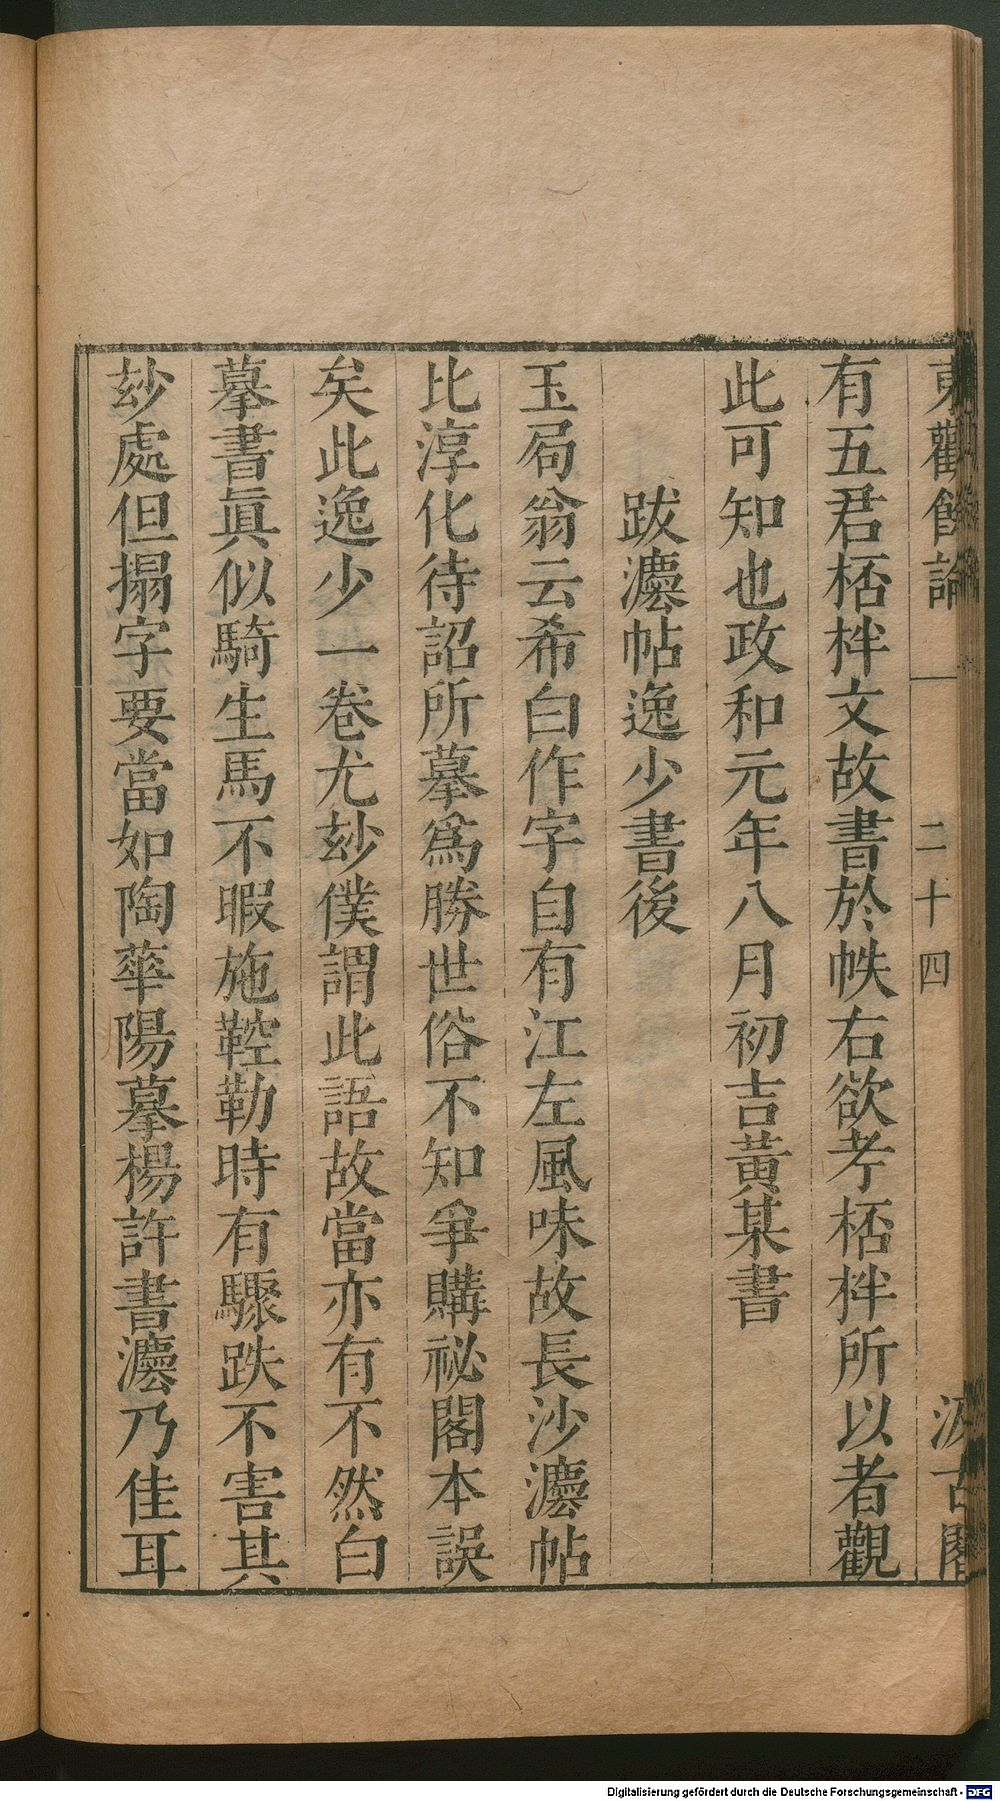 東觀餘論
二十四
汲古閣
有五君桮柈文故書於帙右欲考桮柈所以者觀
此可知也政和元年八月初吉黃某書
跋灋帖逸少書後
玉局翁云希白作字自有江左風味故長沙灋帖
比淳化待詔所摹爲勝世俗不知爭購祕閣本誤
矣此逸少一卷尤玅僕謂此語故當亦有不然白
摹書眞似騎生馬不暇施鞚勒時有驟跌不害其
玅處但搨字要當如陶華陽摹楊許書灋乃佳耳
Digitalisierung gefördert durch die Deutsche Forschungsgemeinschaft - DFG